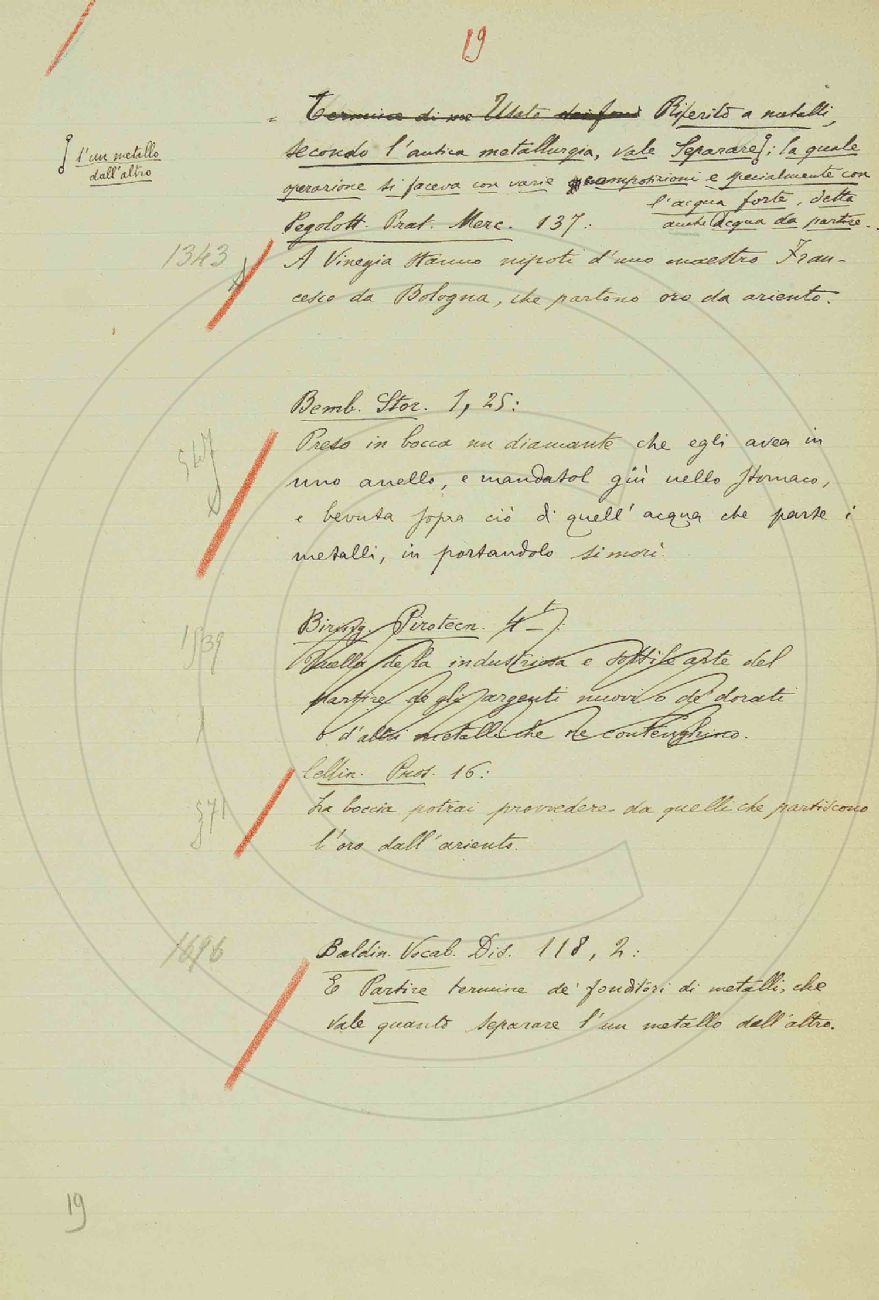 19
= Termine di me Usato dei fond Riferito a metalli,
l'un metallo
dall'altro
secondo l'antica metallurgia, vale Separare; la quale
operazione si faceva con varie composizioni e specialmente con
l'acqua forte, detta
anche acqua da partire.
Pegolott. Prat. Merc. 137:
1343
A Vinegia stanno nipoti d'uno maestro Fran-
cesco da Bologna, che partono oro da ariento.
Bemb. Stor. 1, 25:
547
Preso in bocca un diamante che egli avea in
uno anello, e mandatol giù nello stomaco,
e bevuta sopra ciò di quell'acqua che parte i
metalli, in portandolo si morì.
1539
Biring. Pirotecn. 4
Quella della industriosa e sottile arte del
partire degli argenti nuovi o de' dorati
o d'altri metalli che ne contenghino.
Cellin. Pros. 16:
571
La boccia potrai provvedere da quelli che partiscono
l'oro dall'ariento.
1696
Baldin. Vocab. Dis. 118, 2:
E Partire termine de' fonditori di metalli, che
vale quanto separare l'un metallo dall'altro.
19